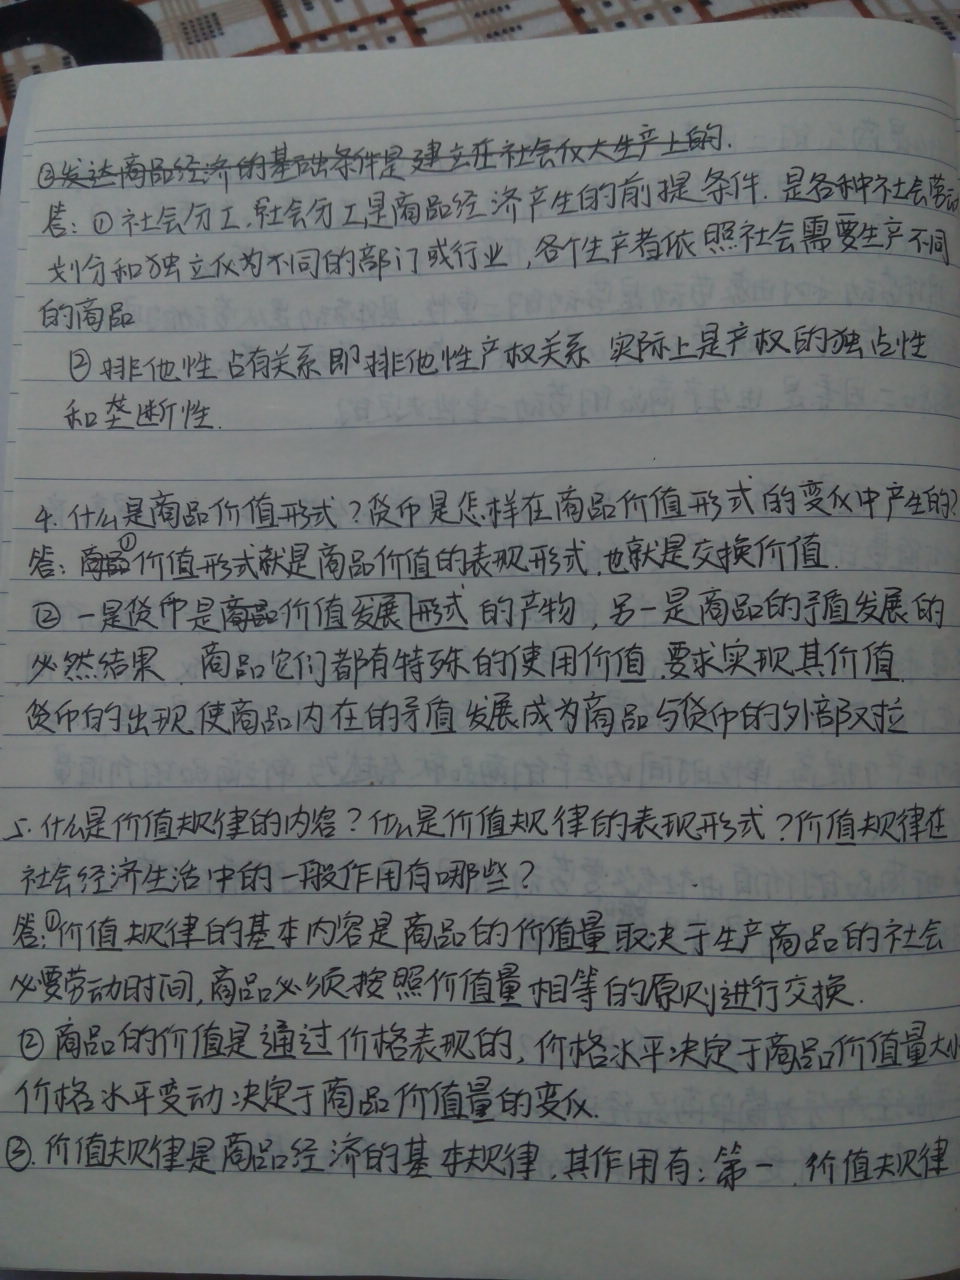 ③发达商品经济的基础条件是建立在社会化大生产上的.
答：①社会分工.社会分工是商品经济产生的前提条件.是各种社会劳动
划分和独立化为不同的部门或行业，各个生产者依照社会需要生产不同
的商品
②排他性占有关系即排他性产权关系 实际上是产权的独占性
和垄断性.
4.什么是商品价值形式？货币是怎样在商品价值形式的变化中产生的？
答：商品①价值形式就是商品价值的表现形式.也就是交换价值.
②一是货币是商品价值发展形式的产物，另一是商品的矛盾发展的
必然结果、商品它们都有特殊的使用价值.要求实现其价值.
货币的出现.使商品内在的矛盾发展成为商品与货币的外部对立
5.什么是价值规律的内容？什么是价值规律的表现形式？价值规律在
社会经济生活中的一般作用有哪些？
答：①价值规律的基本内容是商品的价值量取决于生产商品的社会
必要劳动时间，商品必须按照价值量相等的原则进行交换.
②商品的价值是通过价格表现的，价格水平决定于商品价值量大小
价格水平变动决定于商品价值量的变化.
③.价值规律是商品经济的基本规律.其作用有：第一.价值规律